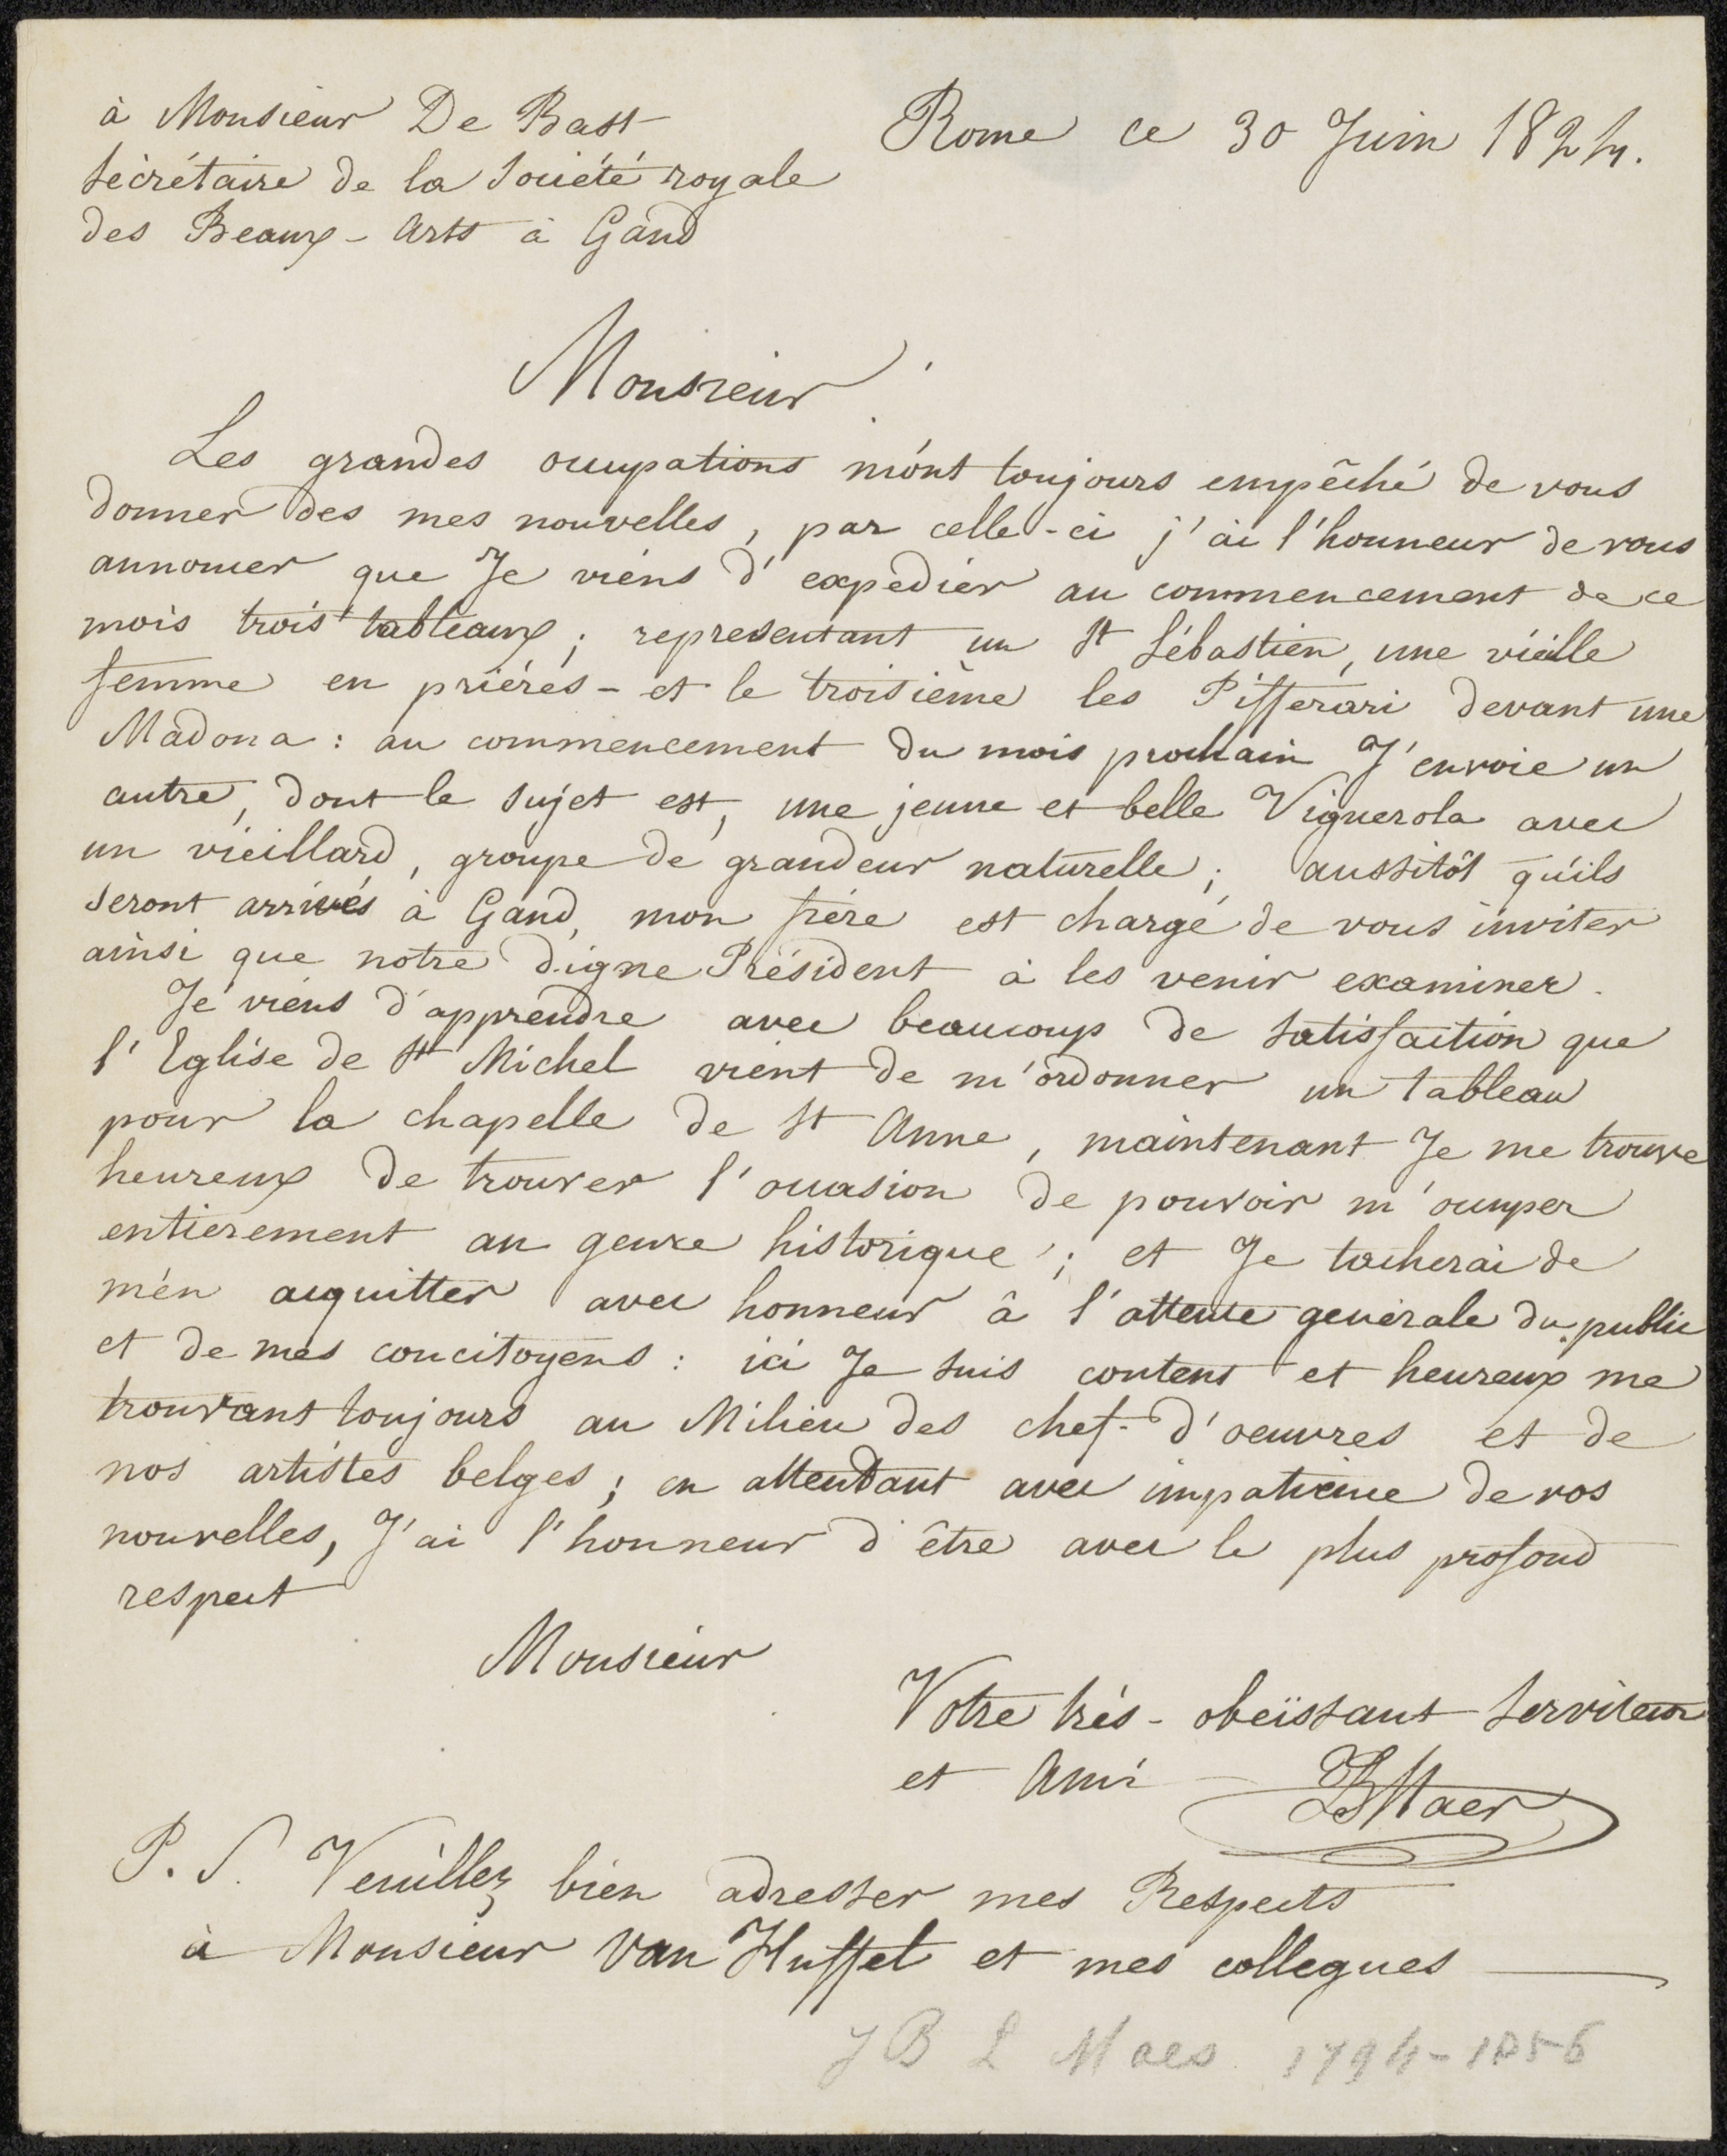 à Monsieur De Bast
sécrétaire de la Société royale
des Beaux-Arts à Gand
Rome ce 30 Juin 1824.
Monsieur
Les grandes occupations m'ònt toujours empêché de vous
donner des mes nouvelles, par celle-ci j'ai l'honneur de vous
annoncer que Je viens d'expedier au commencement de ce
mois trois tableaux; representant un St Sébastien, une vieille
femme en priéres - et le troisième les Pifferari devant une
Madona: au commencement du mois prochain J'envoie un
autre, dont le sujet est, une jeune et belle Vignerola avec
un vieillard, groupe de grandeur naturelle; aussitôt qu'ils
seront arrivés à Gand, mon frére est chargé de vous inviter
ainsi que notre digne Président à les venir examiner.
Je viens d'apprendre avec beaucoup de satisfaction que
l'Eglise de St Michel vient de m'ordonner un tableau
pour la chapelle de St Anne, maintenant Je me trouve
heureux de trouver l'occasion de pouvoir m'occuper
entierement au genre historique; et Je tacherai de
m'én acquitter avec honneur â l'attente generale du public
et de mes concitoyens: ici Je suis content et heureux me
trouvant toujours au Milieu des chef-d'oeuvres et de
nos artistes belges; en attendant avec impatience de vos
nouvelles, J'ai l'honneur d'être avec le plus profond
respect
Monsieur
Votre trés-obeïssant serviteur
et Ami JBMaes
P.S. Veuillez bien adresser mes Respects
à Monsieur Van Huffel et mes collegues
J B L Maes 1794-1856